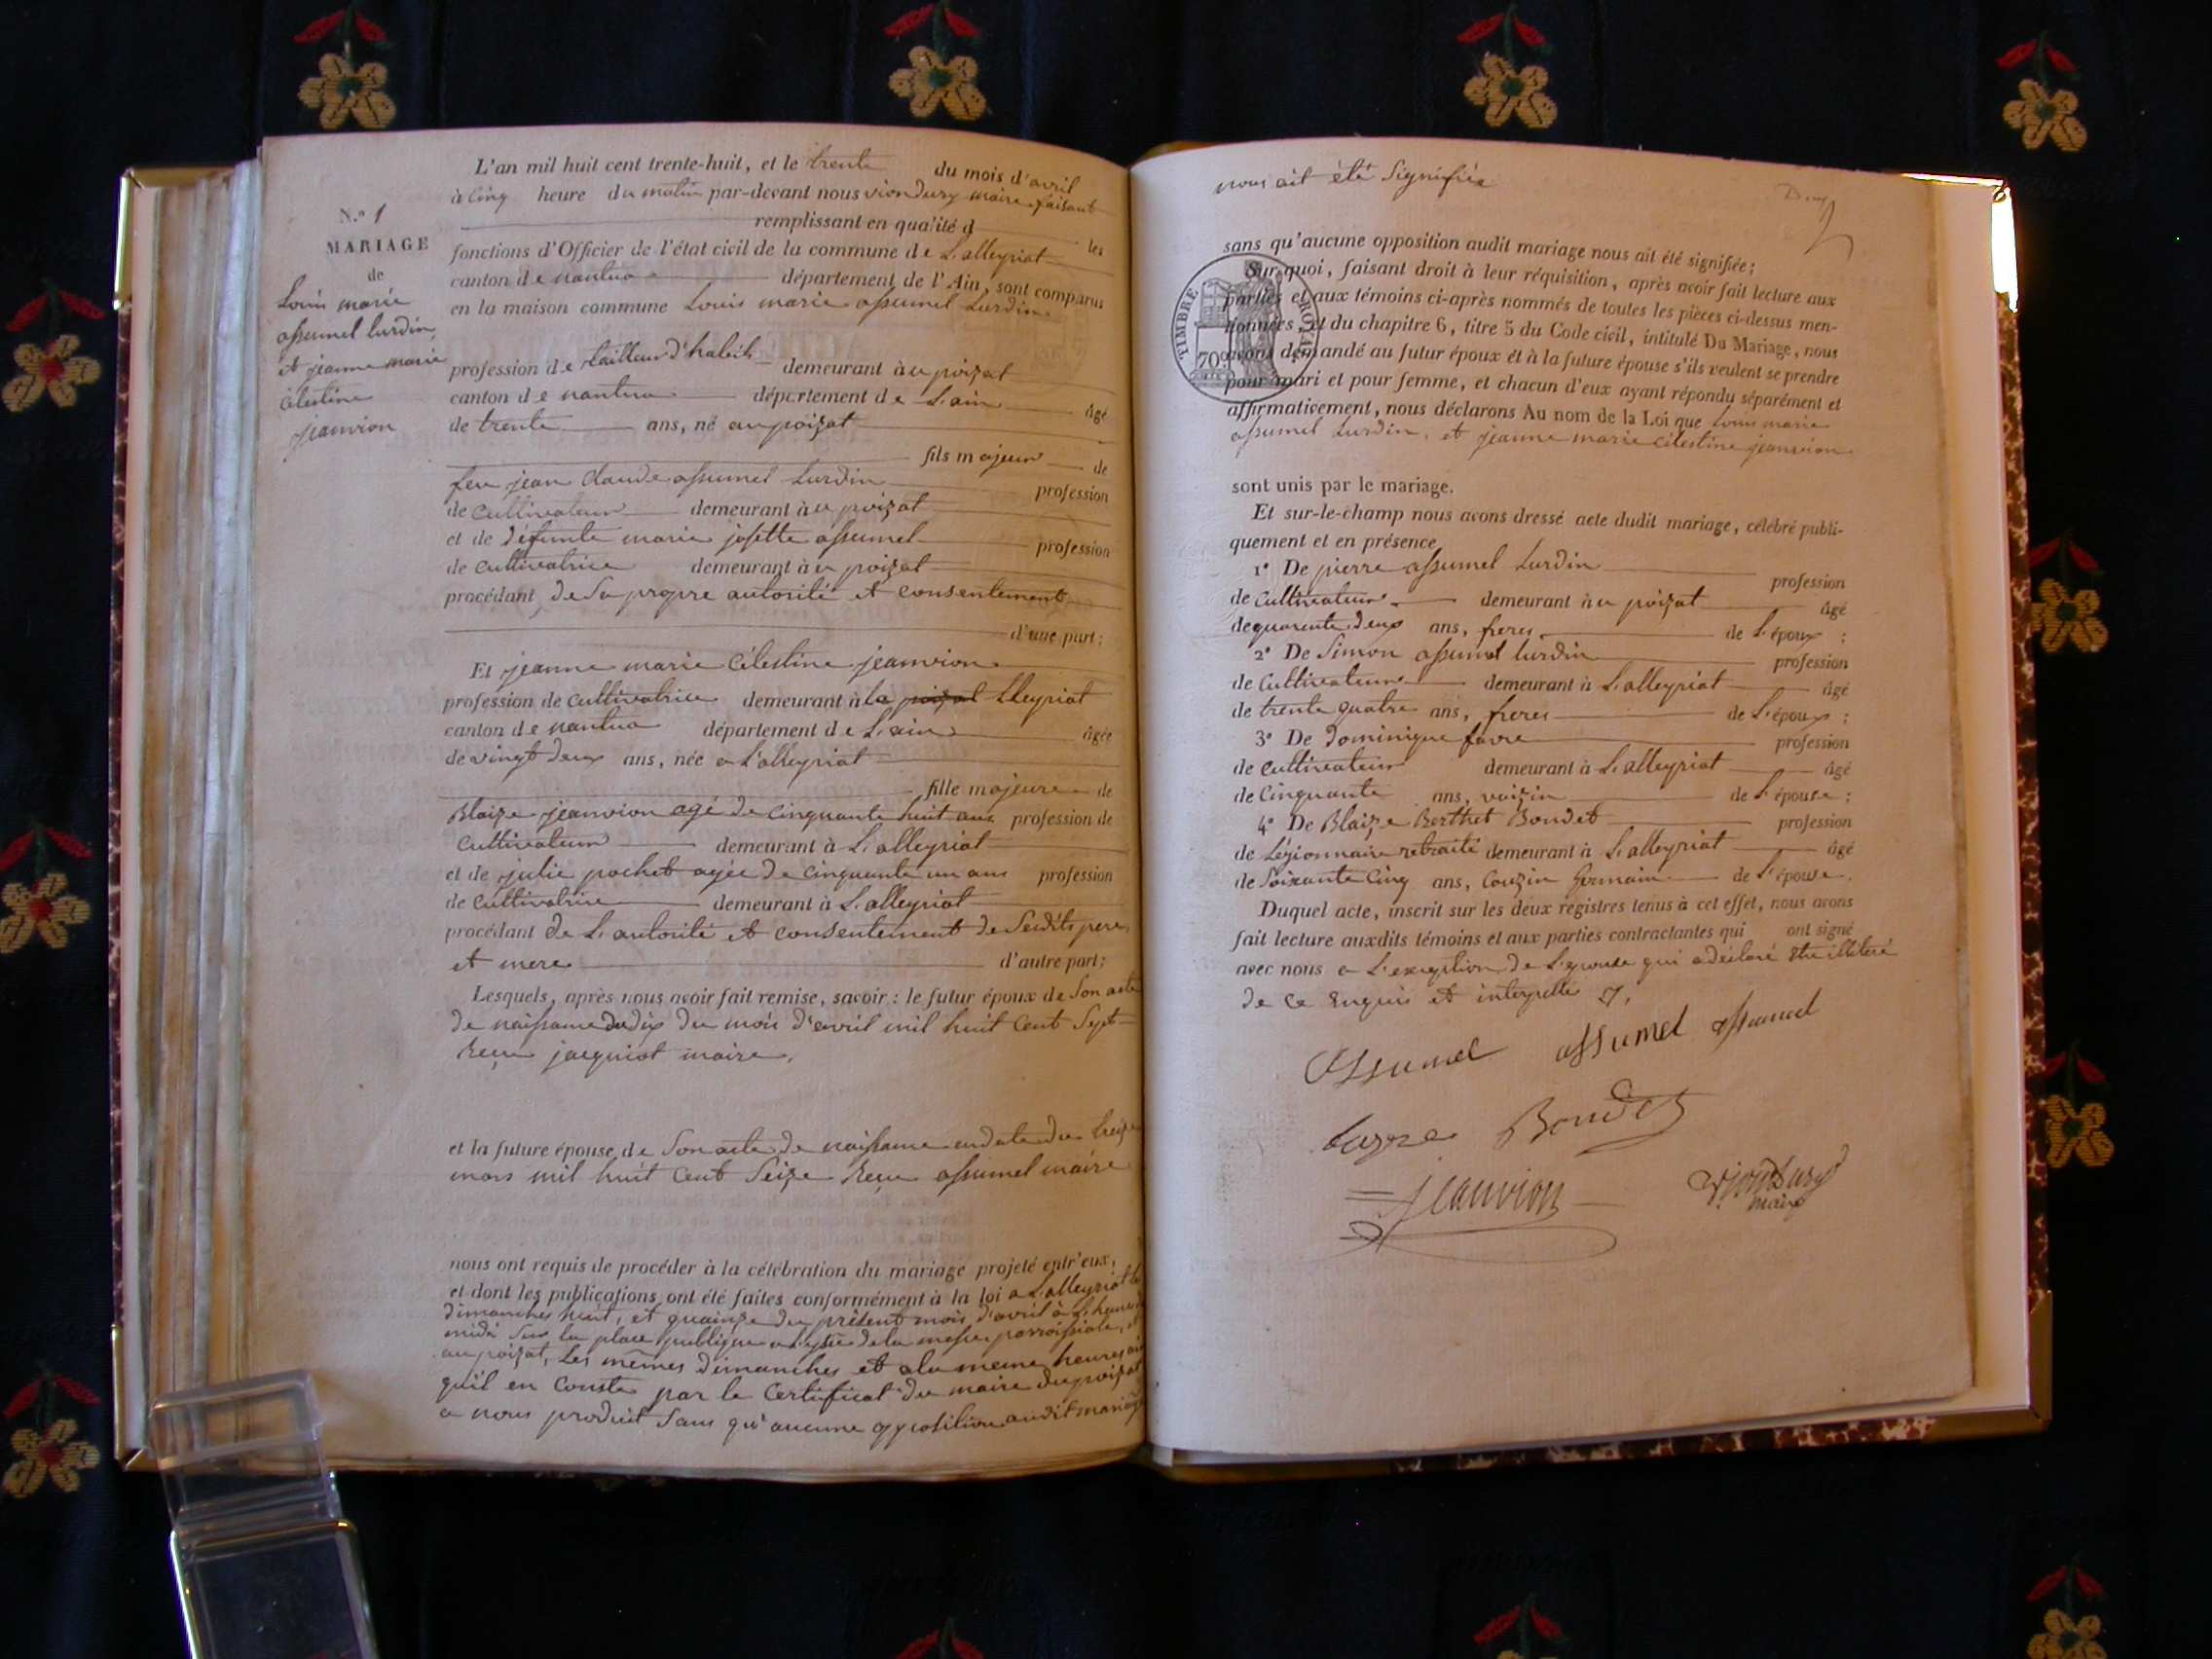 L'an mil huit cent trente-huit, et le trente du mois d'avril
à Cinq heure du matin par-devant nous vion dury maire faisant
remplissant en qualité d les
fonctions d'Officier de l'état civil de la commune de L'alleyriat
canton de nantua département de l'Ain, sont comparus
en la maison commune Louis marie assumel Lurdin
N.º 1
MARIAGE
de
Louis marie
assumel lurdin,
et jeanne marie
célestine
jeanvion
profession de tailleur d'habits demeurant à u poizat
canton de nantua département de L'ain âgé
de trente ans, né au poizat
fils majeur de
feu jean Claude assumel Lurdin profession
de Cultivateur demeurant à u poizat
et de défunte marie josette assumel profession
de Cultivatrice demeurant à u poizat
procédant de Sa propre autorité et consentement
d'une part;
Et jeanne marie Célestine jeanvion
profession de Cultivatrice demeurant à la poizat Lleyriat
canton de nantua département de L'ain âgée
de vingt deux ans, née a L'alleyriat
fille majeure de
Blaize jeanvion agé de Cinquante huit ans profession de
Cultivateur demeurant à L'alleyriat
et de julie pochet agée de Cinquante un ans profession
de Cultivatrice demeurant à L'alleyriat
procédant de L'autorité et consentement de Sesdits pere
et mere d'autre part;
Lesquels, après nous avoir fait remise, savoir: le futur époux de Son acte
de naissance du dix du mois d'avril mil huit Cent Sept
Reçu jacquiot maire,
et la future épouse, de Son acte de naissance en date du treize
mars mil huit Cent Seize Reçu assumel maire
nous ont requis de procéder à la célébration du mariage projeté entr'eux,
et dont les publications ont été faites conformément à la loi a L'alleyriat les
dimanches huit, et quainze du présent mois d'avril à L'heure de
midi Sur la place publique a L'issue de la messe parroissiale, et
au poizat, Les mêmes dimanches et a la meme heures ainsi
qu'il en Conste par le Certificat du maire du poizat
a nous produit Sans qu'aucune opposition audit mariage
nous ait été Signifiée
sans qu'aucune opposition audit mariage nous ait été signifiée;
Sur quoi, faisant droit à leur réquisition, après avoir fait lecture aux
parties et aux témoins ci-après nommés de toutes les pièces ci-dessus men-
tionnées, et du chapitre 6, titre 5 du Code civil, intitulé Du Mariage, nous
avons demandé au futur époux et à la future épouse s'ils veulent se prendre
pour mari et pour femme, et chacun d'eux ayant répondu séparément et
affirmativement, nous déclarons Au nom de la Loi que Louis marie
assumel Lurdin, et jeanne marie célestine jeanvion
TIMBRE ROYAL
70c
sont unis par le mariage.
Et sur-le-champ nous avons dressé acte dudit mariage, célébré publi-
quement et en présence
1º De pierre assumel Lurdin profession
de Cultivateur demeurant à u poizat âgé
de quarente deux ans, freres de L'époux ;
2º De Simon assumel lurdin profession
de Cultivateur demeurant à L'alleyriat âgé
de trente quatre ans, freres de L'époux ;
3º De Dominique favre profession
de Cultivateur demeurant à L'alleyriat âgé
de Cinquante ans, voizin de L'épouse ;
4º De Blaize Berthet Bondet profession
de Légionnaire retraité demeurant à L'alleyriat âgé
de Soixante Cinq ans, Couzin Germain de L'épouse.
Duquel acte, inscrit sur les deux registres tenus à cet effet, nous avons
fait lecture auxdits témoins et aux parties contractantes qui ont signé
avec nous a L'exception de L'epouse qui a déclaré etre illiteré
de Ce Enquis et interpellés
Assumel assumel assumel
Bondet
Jeanvion
Viondury
maire